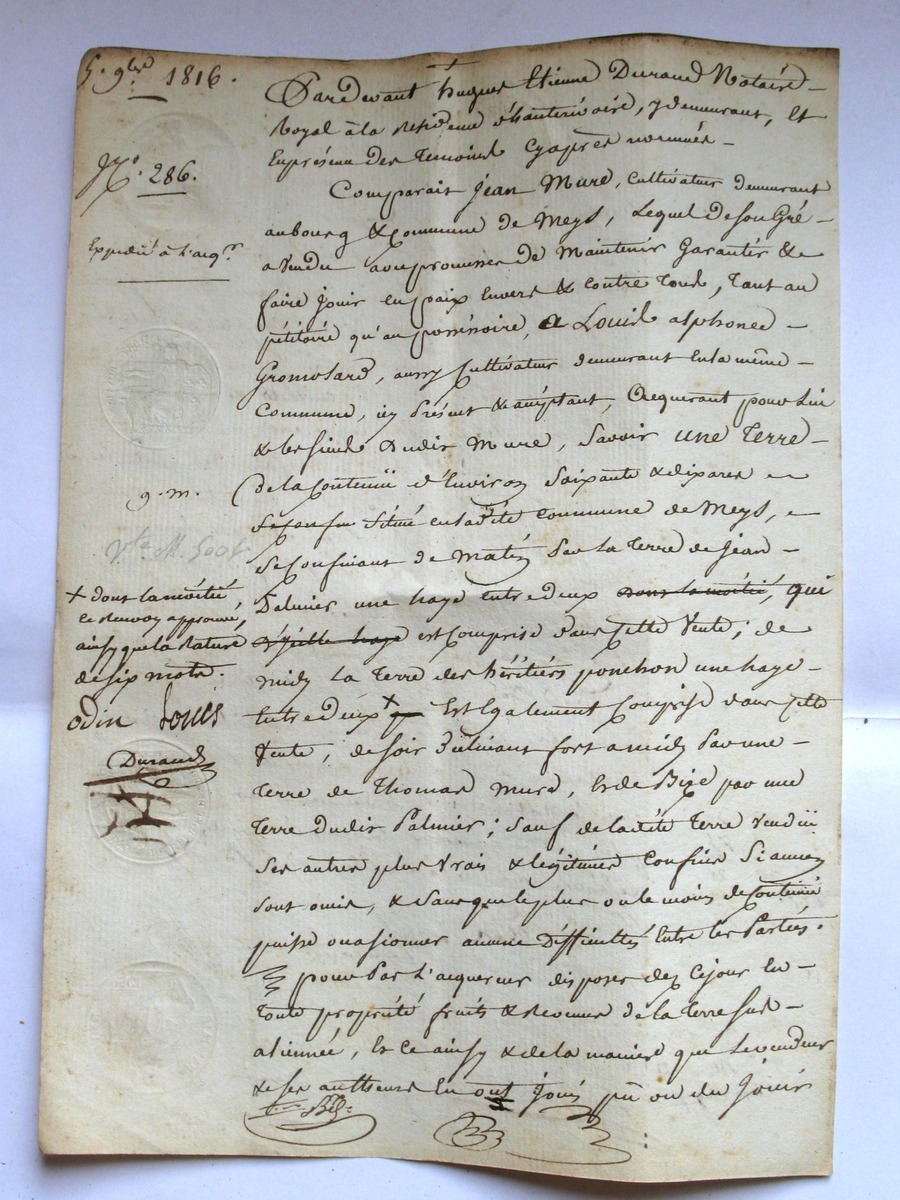 5. 9bre 1816.
No. 286.
Expédié à l'acqr.
9. m.
+ dont la moitié
ce renvoy approuvé,
ainsy que la rature
de six mots.
odin Louis
Durand
Pardevant hugues Etienne Durand Notaire
Royal à la residence d'hauterivoire, y demeurant, Et
En présence des temoins cyaprès nommés
Comparait Jean Mure, Cultivateur demeurant
au bourg & Commune de Meys, Lequel de son Gré
a vendu avec promesse de Maintenir Garantir &
faire jouir en paix Envers & contre Tous, tant au
pétitoire qu'au possessoire, a Louis alphonce
Gromolard, aussy Cultivateur demeurant En la même
Commune, icy Présent & acceptant, Acquerant pour Lui
& les siens dudit Mure, Savoir une Terre
de la Contenüe d'Environ Soixante & dix ares
Située en ladite Commune de Meys,
Se Confinant de Matin par La Terre de Jean
Palmier une haye entre deux dont la moitié, qui
est Comprise dans Cette Vente; de
midy La Terre des héritiers ponchon une haye
Entre deux + Est Egalement Comprise dans cette
Vente; de soir Déclinant fort a midy par une
Terre de Thomas Mure, & de Bize par une
Terre dudit Palmier; Sauf de ladite Terre vendüe
Ses autres plus vrais & légitimes Confins Si aucun
sont omis, & Sans que le plus ou le moins de Contenüe
puisse occasionner aucune Difficultés Entre les Parties.
pour Par L'acquereur disposer dez Cejour En
Toute propriété fruits & revenus de la Terre sus
alienée, Et Ce ainsy & de la maniere que Le vendeur
& ses autheurs En ont Joui pû ou du Jouir